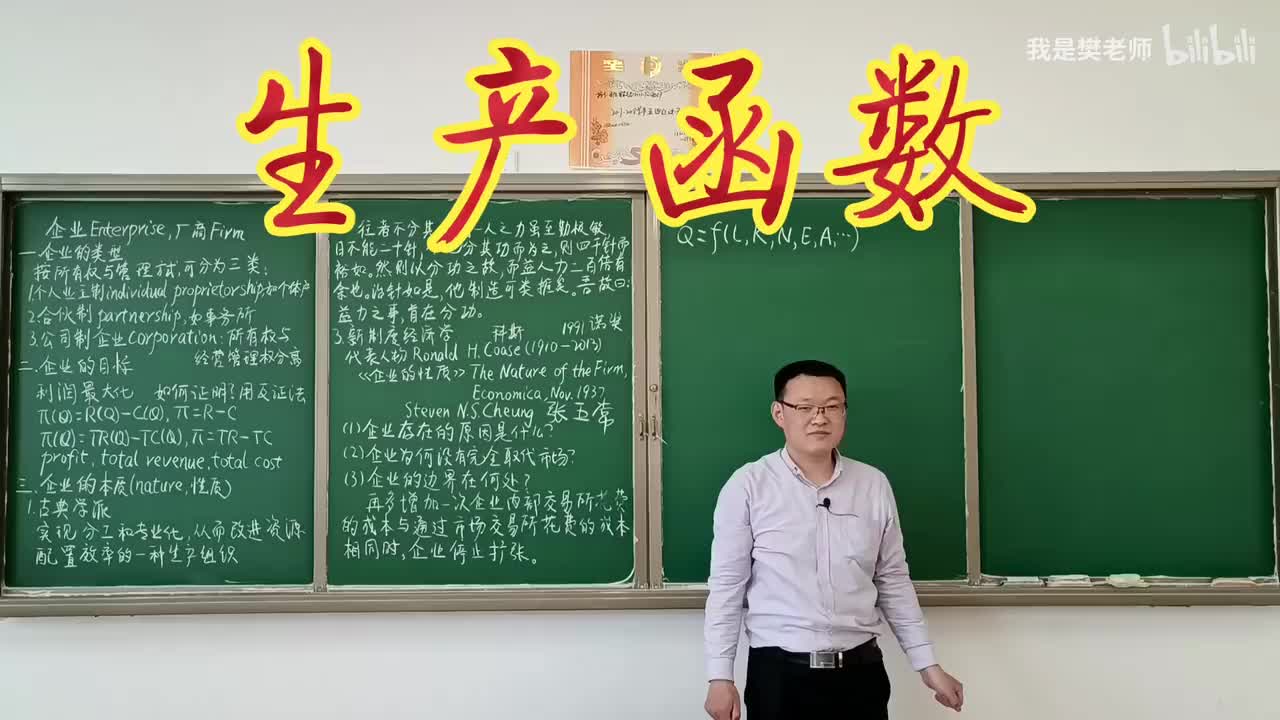 生产函数
我是樊老师 bilibili
企业Enterprise,厂商Firm
一.企业的类型
按所有权与管理方式,可分为三类:
1.个人业主制individual proprietorship,如个体户
2.合伙制partnership,如事务所
3.公司制企业corporation:所有权与
经营管理权分离
二.企业的目标
利润最大化 如何证明?用反证法
π(Q)=R(Q)-C(Q),π=R-C
π(Q)=TR(Q)-TC(Q),π=TR-TC
profit,total revenue,total cost
三.企业的本质(nature,性质)
1.古典学派
实现分工和专业化,从而改进资源
配置效率的一种生产组织
往者不分其 一人之力虽至勤极敏
日不能二十针, 分其功而为之,则四千针而
裕如。然则以分功之故,而益人力二百倍有
余也。治针如是,他制造可类推矣。吾故曰:
益力之事,皆在分功。
3.新制度经济学 科斯 1991诺奖
代表人物Ronald H.Coase(1910-2013)
《企业的性质》The Nature of the Firm,
Economica,Nov.1937
Steven N.S.Cheung 张五常
(1)企业存在的原因是什么?
(2)企业为何没有完全取代市场?
(3)企业的边界在何处?
再多增加一次企业内部交易所花费
的成本与通过市场交易所花费的成本
相同时,企业停止扩张。
Q=f(L,K,N,E,A,…)